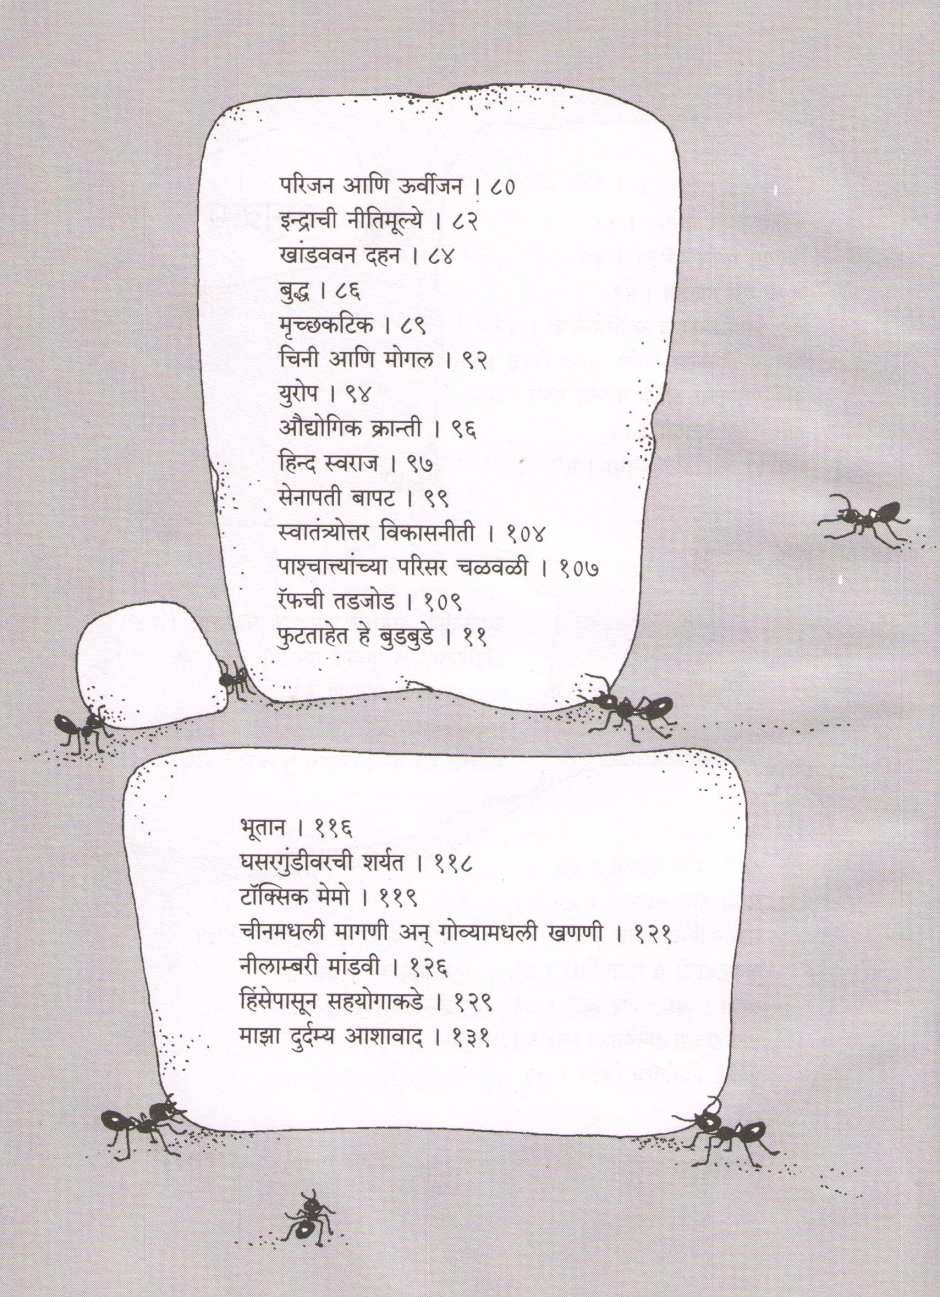 परिजन आणि ऊर्वीजन । ८०
इन्द्राची नीतिमूल्ये । ८२
खांडववन दहन । ८४
बुद्ध । ८६
मृच्छकटिक । ८९
चिनी आणि मोगल । ९२
युरोप । ९४
औद्योगिक क्रान्ती । ९६
हिन्द स्वराज । ९७
सेनापती बापट । ९९
स्वातंत्र्योत्तर विकासनीती । १०४
पाश्चात्त्यांच्या परिसर चळवळी । १०७
रॅफची तडजोड । १०९
फुटताहेत हे बुडबुडे । ११
भूतान । ११६
घसरगुंडीवरची शर्यत । ११८
टॉक्सिक मेमो । ११९
चीनमधली मागणी अन् गोव्यामधली खणणी । १२१
नीलाम्बरी मांडवी । १२६
हिंसेपासून सहयोगाकडे । १२९
माझा दुर्दम्य आशावाद । १३१